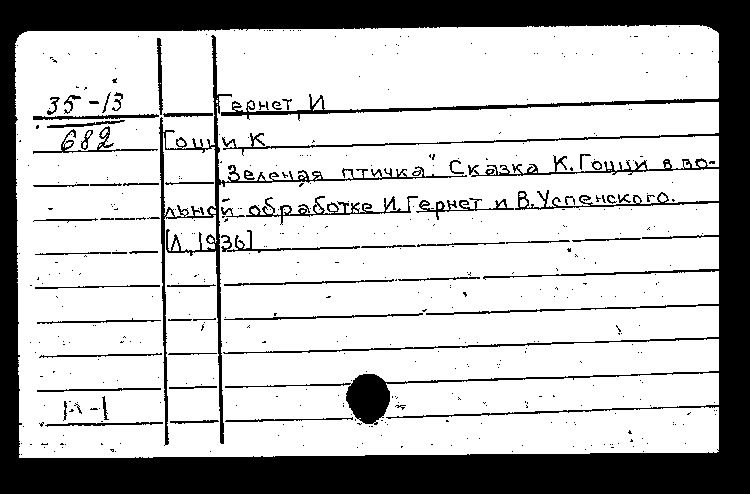 35-13
682
Гернет, И
Гоцци, К
„Зеленая птичка". Сказка К. Гоцци в во-
льной обработке И. Гернет и В. Успенского.
[Л., 1936].